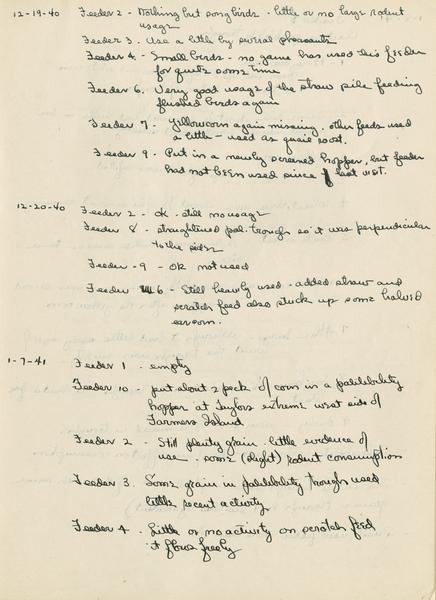 12-19-40 Feeder 2 - Nothing but song birds - little or no large rodent
usage
Feeder 3. Use a little by several pheasants
Feeder 4 - Small birds - no game has used this feeder
for quite some time
Feeder 6. Very good usage of the straw pile feeding
flushed birds again
Feeder 7. Yellow corn again missing. other feeds used
a little - used as quail roost.
Feeder 9. Put in a newly screened hopper, but feeder
had not been used since last visit.
12-20-40 Feeder 2 - OK - still no usage
Feeder 8 - straightened pal. trough so it was perpendicular
to the sides
Feeder - 9 - OK not used
Feeder 6 - Still heavily used - added straw and
scratch feed also stuck up some halved
ear corn.
1-7-41 Feeder 1 - empty
Feeder 10 - put about 2 peck of corn in a palatability
hopper at Taylors extreme west side of
Farmers Island
Feeder 2 - Still plenty grain - little evidence of
use - some (slight) rodent consumption
Feeder 3. Some grain in palatability trough used
little recent activity
Feeder 4 - Little or no activity on scratch feed
it flows freely